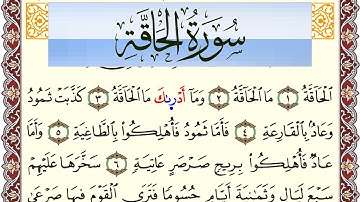 سُورَةُ الْحَاقَّةِ
الْحَاقَّةُ ١ مَا الْحَاقَّةُ ٢ وَمَآ أَدْرَىٰكَ مَا الْحَاقَّةُ ٣ كَذَّبَتْ ثَمُودُ
وَعَادٌۢ بِالْقَارِعَةِ ٤ فَأَمَّا ثَمُودُ فَأُهْلِكُوا۟ بِالطَّاغِيَةِ ٥ وَأَمَّا
عَادٌ فَأُهْلِكُوا۟ بِرِيحٍ صَرْصَرٍ عَاتِيَةٍ ٦ سَخَّرَهَا عَلَيْهِمْ
سَبْعَ لَيَالٍ وَثَمَٰنِيَةَ أَيَّامٍ حُسُومًا فَتَرَى الْقَوْمَ فِيهَا صَرْعَىٰ